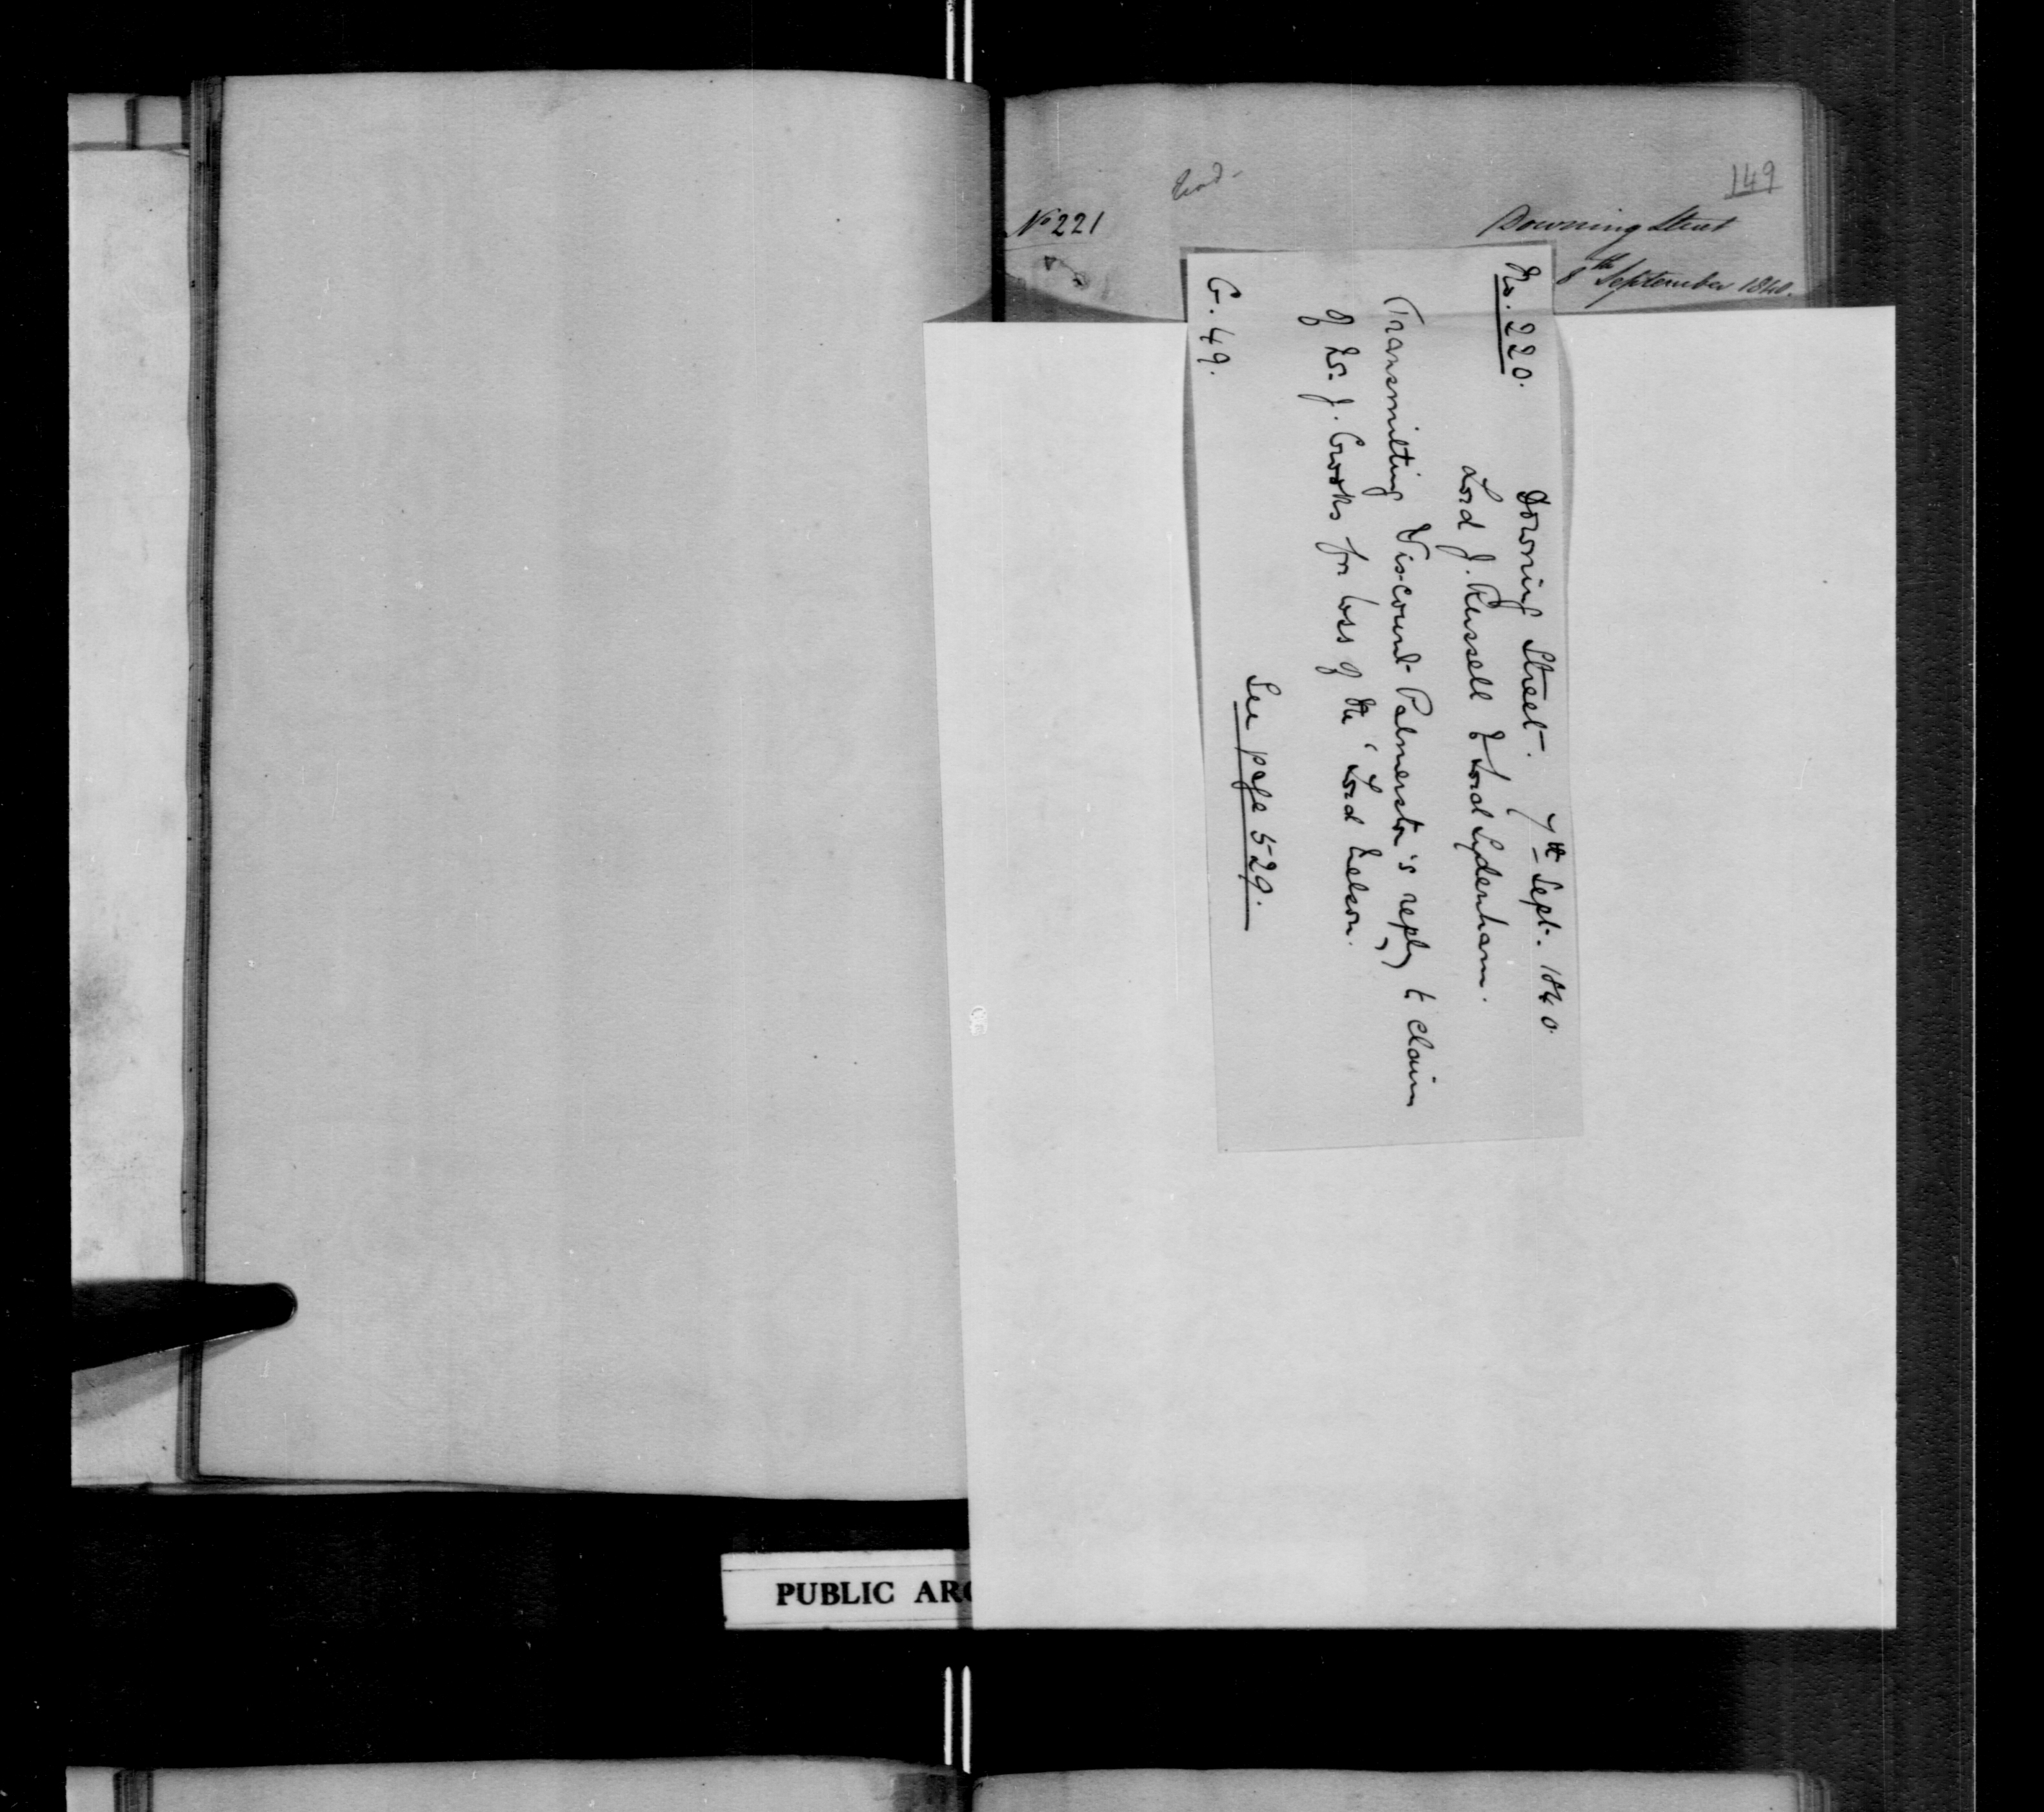 149
No 221
Downing Street
8th September 1840.
No. 220. Downing Street. 7th Sept. 1840.
Lord J. Russell to Lord Sydenham.
Transmitting Viscount Palmerston's reply to claim
of W. J. Crooks for loss of the 'Lord Nelson.'
See page 529.
G. 49.
PUBLIC ARC